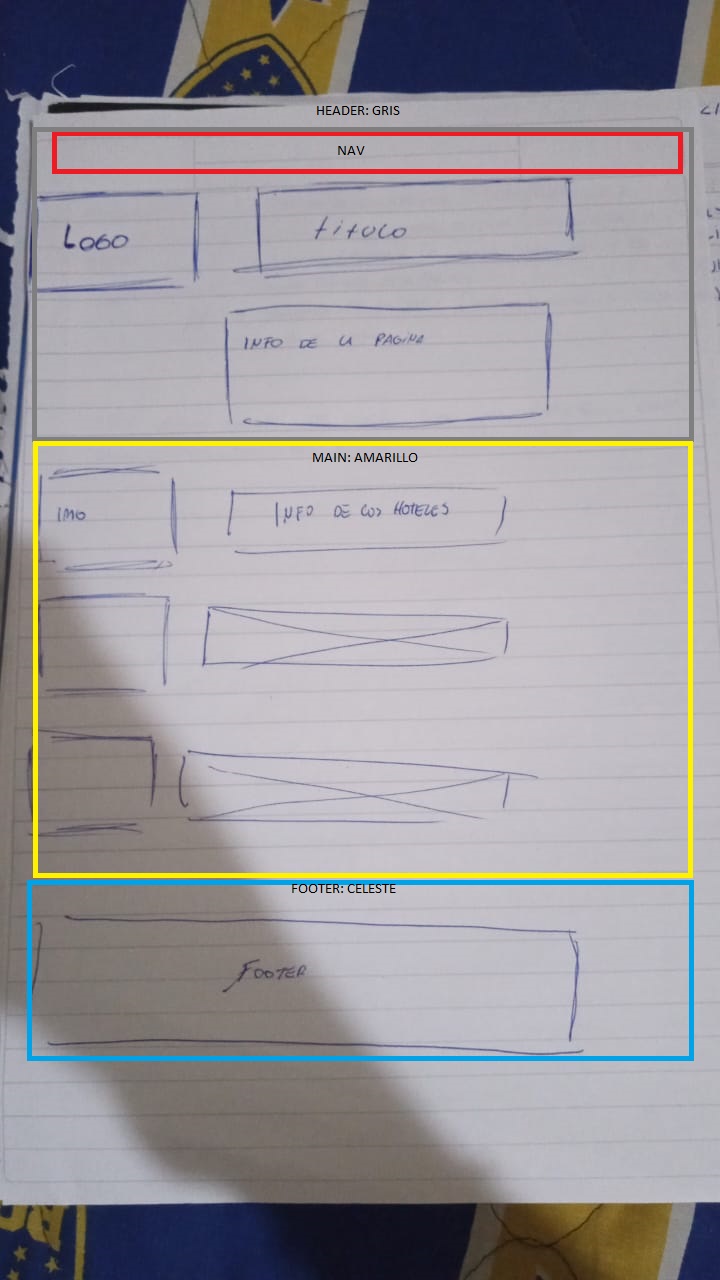 HEADER: GRIS
NAV
LOGO
titulo
INFO DE LA PAGINA
MAIN: AMARILLO
IMG
INFO DE LOS HOTELES
FOOTER: CELESTE
FOOTER